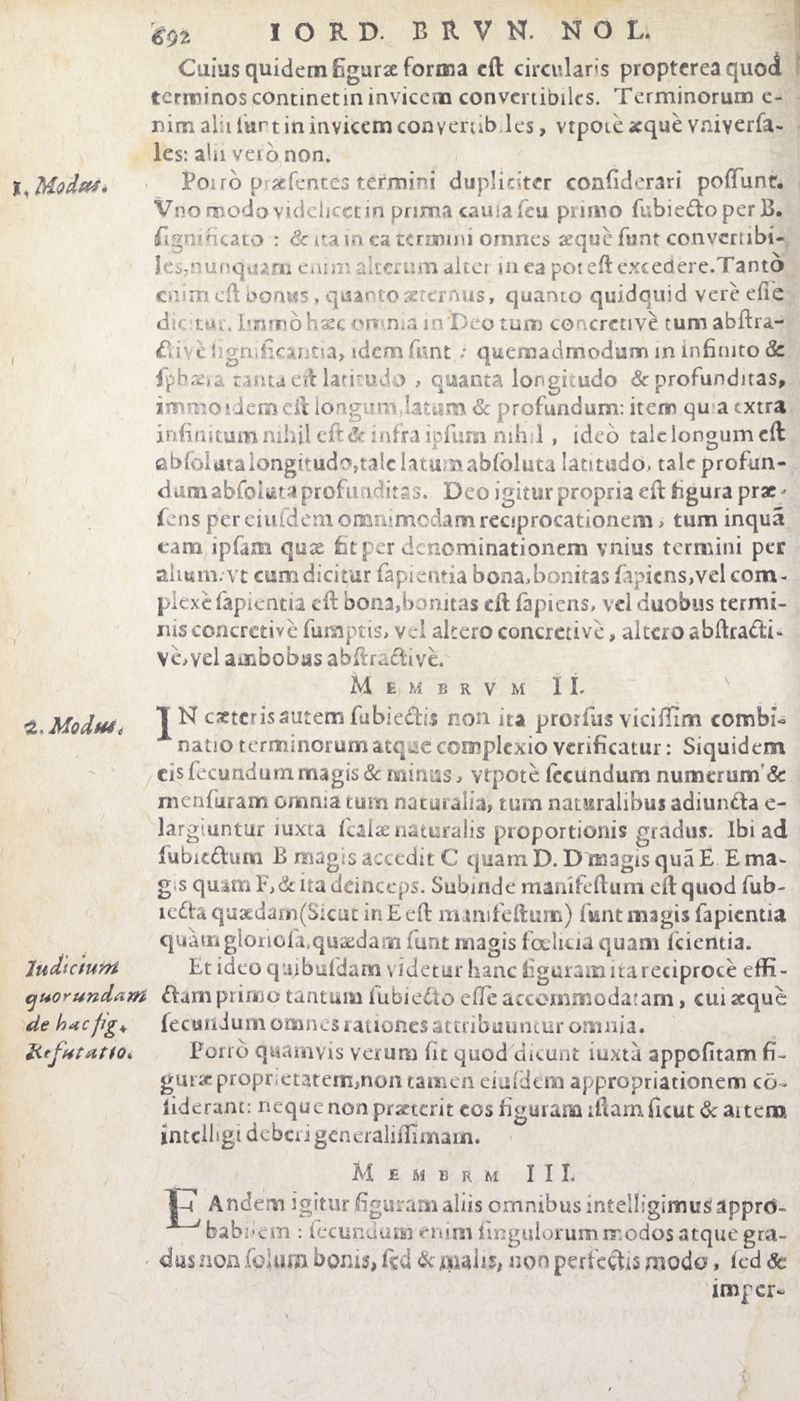 692 IORD. BRVN. NOL.
Cuius quidem figuræ forma eſt circularis propterea quod
terminos continet in invicem convertibiles. Terminorum e-
nim alii ſunt in invicem convertibiles, vtpotè æquè vniverſa-
les: alii verò non.
1. Modus.
Porrò præſentes termini dupliciter conſiderari poſſunt.
Vno modo videlicet in prima cauſa ſeu primo ſubiecto per B.
ſignificato : & ita in ea termini omnes æquè ſunt convertibi-
les, nunquam enim alterum alter in ea poteſt excedere. Tantò
enim eſt bonus, quanto æternus, quanto quidquid verè eſſe
dicitur. Immò hæc omnia in Deo tum concretivè tum abſtra-
ctivè ſignificantia, idem ſunt : quemadmodum in infinito &
ſphæra tanta eſt latitudo , quanta longitudo & profunditas,
immo idem eſt longum, latum & profundum: item quia extra
infinitum nihil eſt & infra ipſum nihil , ideò tale longum eſt
abſoluta longitudo, tale latum abſoluta latitudo, tale profun-
dum abſoluta profunditas. Deo igitur propria eſt figura præ-
ſens per eiuſdem omnimodam reciprocationem, tum inquã
eam ipſam quæ fit per denominationem vnius termini per
alium: vt cum dicitur ſapientia bona, bonitas ſapiens, vel com-
plexè ſapientia eſt bona, bonitas eſt ſapiens, vel duobus termi-
nis concretivè ſumptis, vel altero concretivè, altero abſtracti-
vè, vel ambobus abſtractivè.
MEMBRVM II.
2. Modus.
IN cæteris autem ſubiectis non ita prorſus viciſſim combi-
natio terminorum atque complexio verificatur: Siquidem
eis ſecundum magis & minus, vtpotè ſecundum numerum &
menſuram omnia tum naturalia, tum naturalibus adiuncta e-
largiuntur iuxta ſcalæ naturalis proportionis gradus. Ibi ad
ſubiectum B magis accedit C quam D. D magis quã E. E ma-
gis quam F, & ita deinceps. Subinde manifeſtum eſt quod ſub-
iecta quædam (Sicut in E eſt manifeſtum) ſunt magis ſapientia
quàm glorioſa, quædam ſunt magis fœlicia quam ſcientia.
Iudicium
quorundam
de hac fig.
Et ideo quibuſdam videtur hanc figuram ita reciprocè effi-
ctam primo tantum ſubiecto eſſe accommodatam, cui æquè
ſecundum omnes rationes attribuuntur omnia.
Refutatio.
Porrò quamvis verum ſit quod dicunt iuxtà appoſitam fi-
guræ proprietatem, non tamen eiuſdem appropriationem cõ-
ſiderant: neque non præterit eos figuram iſtam ſicut & aitem
intelligi deberi generaliſſimam.
MEMBRM III.
EAndem igitur figuram aliis omnibus intelligimus appro-
babilem : ſecundum enim ſingulorum modos atque gra-
dus non ſolum bonis, ſed & malis, non perfectis modo, ſed &
imper-